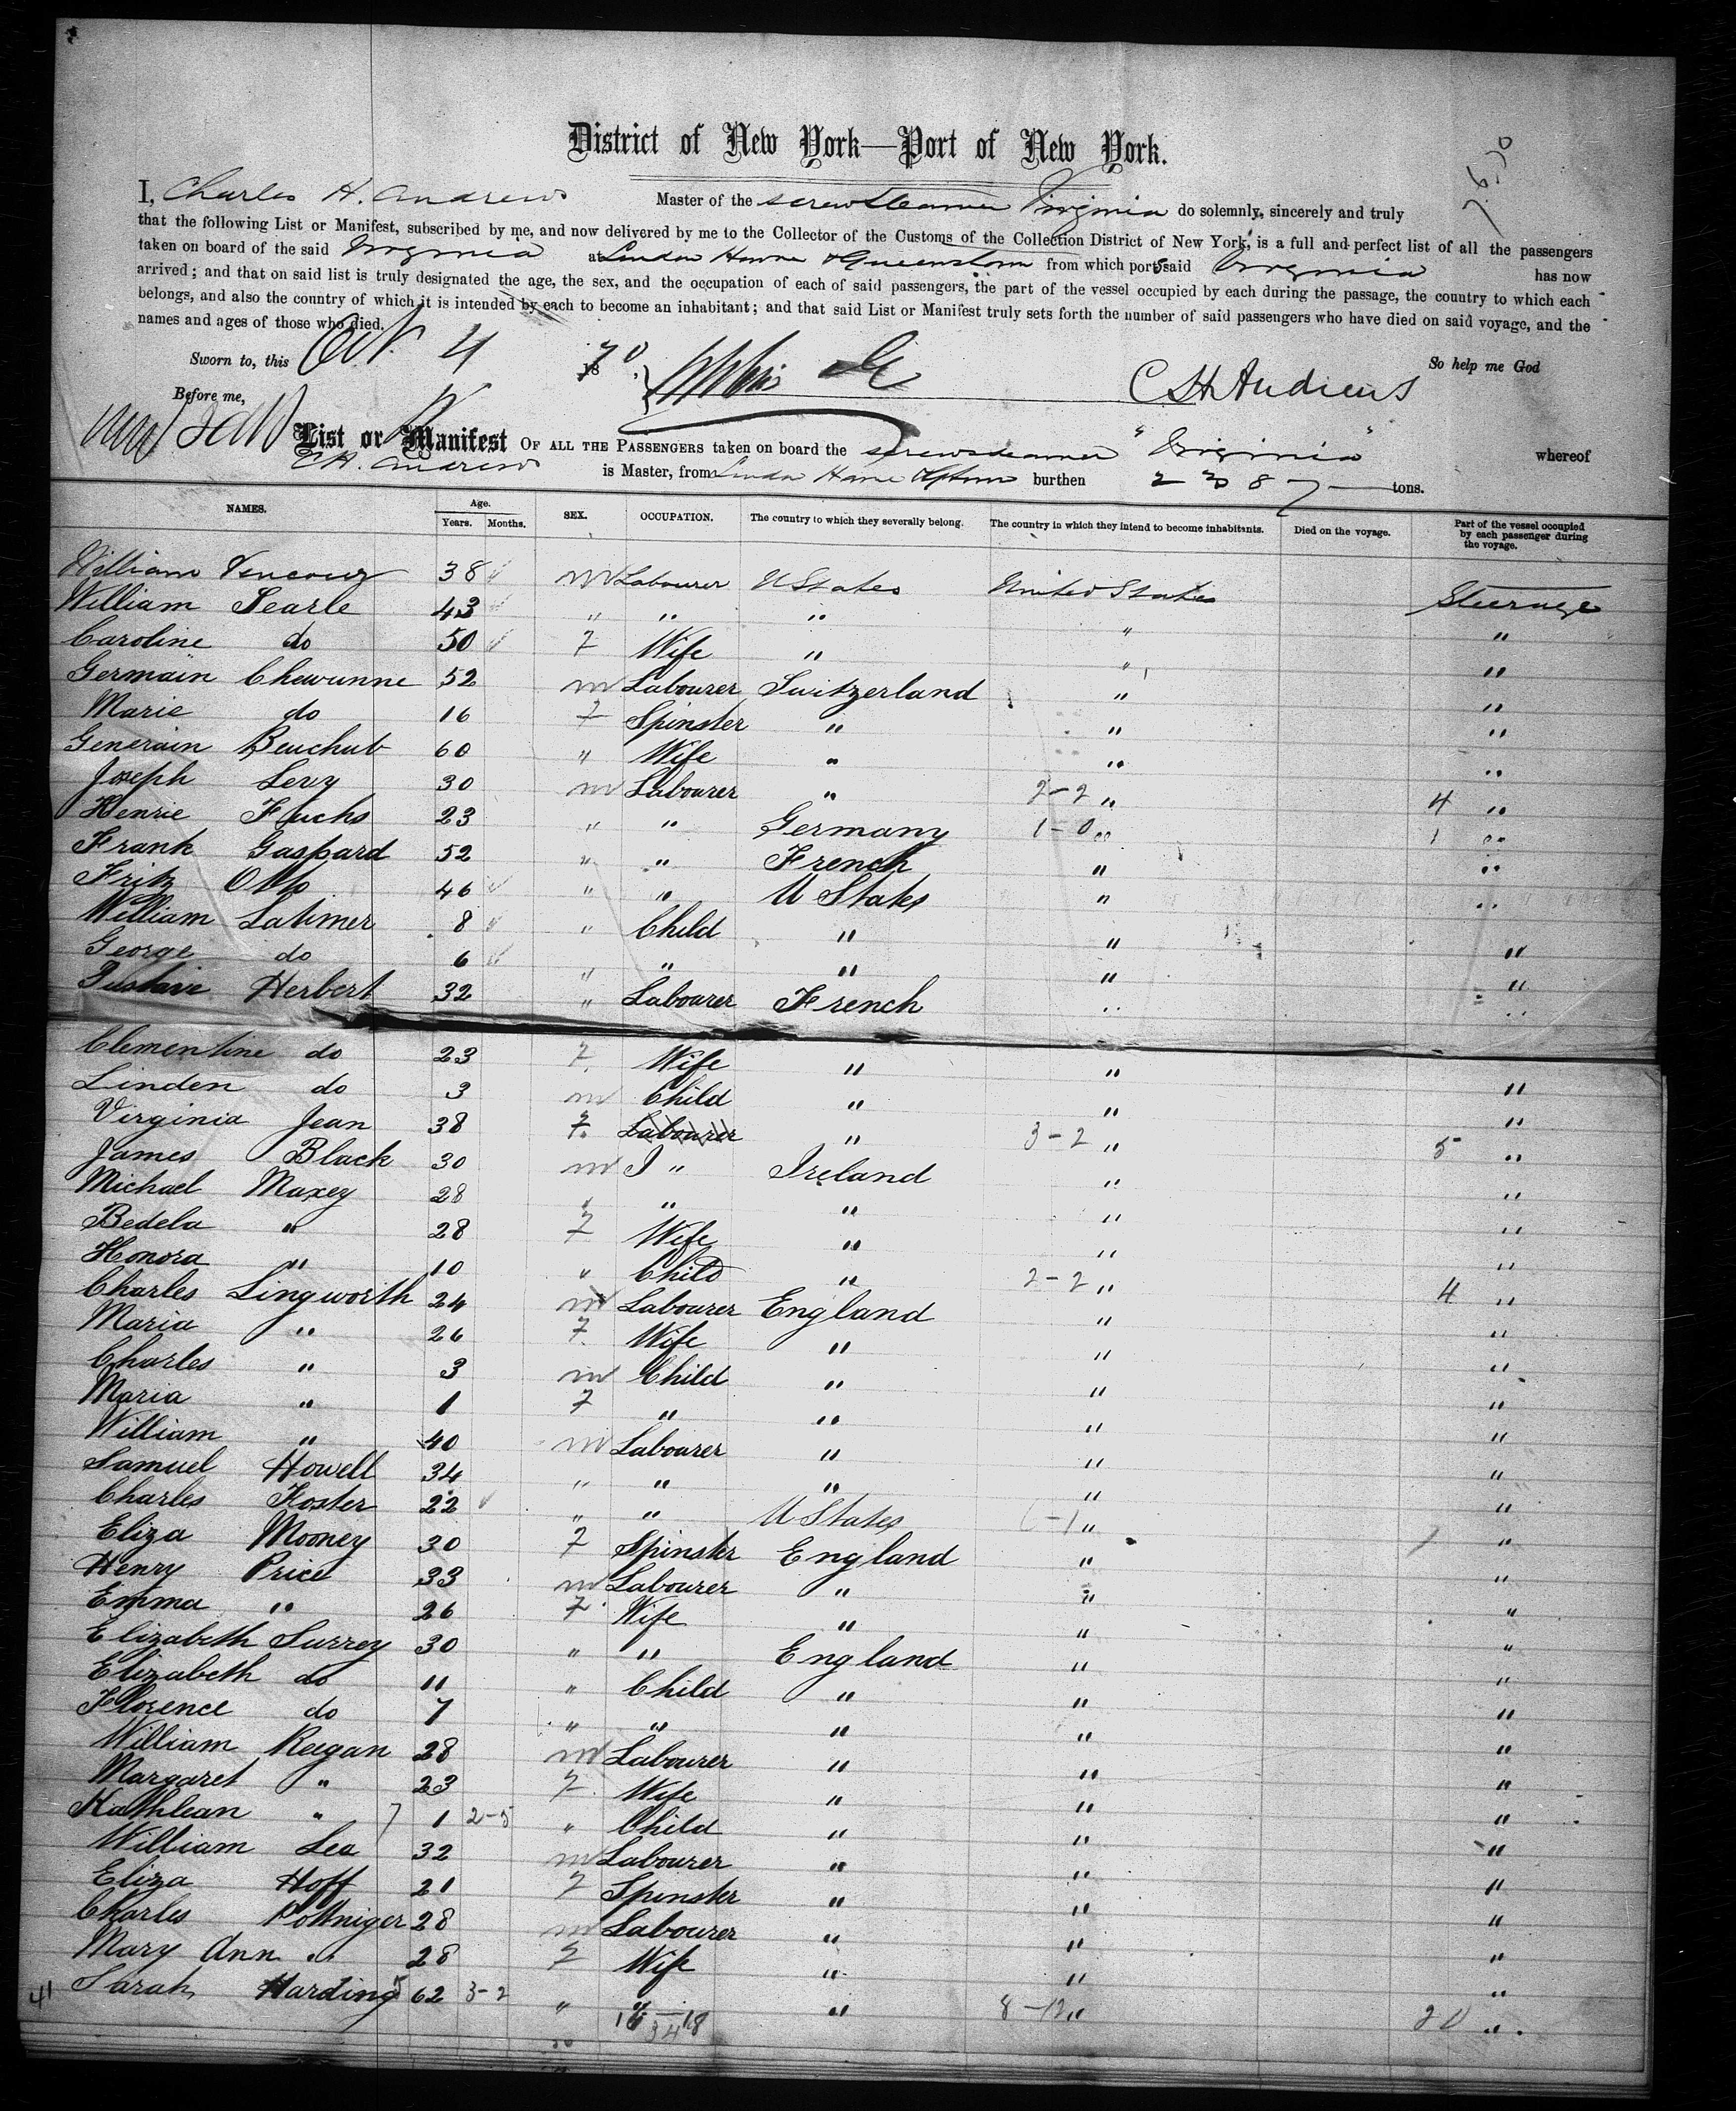 District of New York—Port of New York.
I, Charles H. Andrews Master of the screwsteamer Virginia do solemnly, sincerely and truly
that the following List or Manifest, subscribed by me, and now delivered by me to the Collector of the Customs of the Collection District of New York, is a full and perfect list of all the passengers
taken on board of the said Virginia at London Havre & Queenstown from which ports said Virginia has now
arrived; and that on said list is truly designated the age, the sex, and the occupation of each of said passengers, the part of the vessel occupied by each during the passage, the country to which each
belongs, and also the country of which it is intended by each to become an inhabitant; and that said List or Manifest truly sets forth the number of said passengers who have died on said voyage, and the
names and ages of those who died. So help me God
Sworn to, this Oct. 4 1870,
Before me, C H Andrews
List or Manifest OF ALL THE PASSENGERS taken on board the screwsteamer "Virginia" whereof
C H. Andrews is Master, from London Havre burthen 2387 tons.
NAMES. Age. Years. Months. SEX. OCCUPATION. The country to which they severally belong. The country in which they intend to become inhabitants. Died on the voyage. Part of the vessel occupied by each passenger during the voyage.
William 38 m Labourer U States United States Steerage
William Searle 43 " " " " "
Caroline do 50 f Wife " " "
Germain Chewunne 52 m Labourer Switzerland " "
Marie do 16 f Spinster " " "
Generain Beuchub 60 " Wife " " "
Joseph Levy 30 m Labourer " 2-2 " 4 "
Henrie Fuchs 23 " " Germany 1-0 " 1 "
Frank Gaspard 52 " " French " "
Fritz Otto 46 " " U States " "
William Latimer 8 " Child " " "
George do 6 " " " " "
Gustave Herbert 32 " Labourer French " "
Clementine do 23 f Wife " " "
Linden do 3 m Child " " "
Virginia Jean 38 f Labourer " 3-2 " 5 "
James Black 30 m " Ireland " "
Michael Maxey 28 " " " " "
Bedela " 28 f Wife " " "
Honora " 10 " Child " 2-2 " 4 "
Charles Lingworth 24 m Labourer England " "
Maria " 26 f Wife " " "
Charles " 3 m Child " " "
Maria " 1 f " " " "
William " 40 m Labourer " " "
Samuel Howell 34 " " " " "
Charles Foster 22 " " U States " "
Eliza Mooney 30 f Spinster England " "
Henry Price 33 m Labourer " " "
Emma " 26 f Wife " " "
Elizabeth Surrey 30 " " England " "
Elizabeth do 11 " Child " " "
Florence do 7 " " " " "
William Reegan 28 m Labourer " " "
Margaret " 23 f Wife " " "
Kathlean " 1 2-5 " Child " " "
William Lea 32 m Labourer " " "
Eliza Hoff 21 f Spinster " " "
Charles Pottniger 28 m Labourer " " "
Mary Ann " 28 f Wife " " "
41 Sarah Harding 62 3-2 " " " 8-12 " 20 "